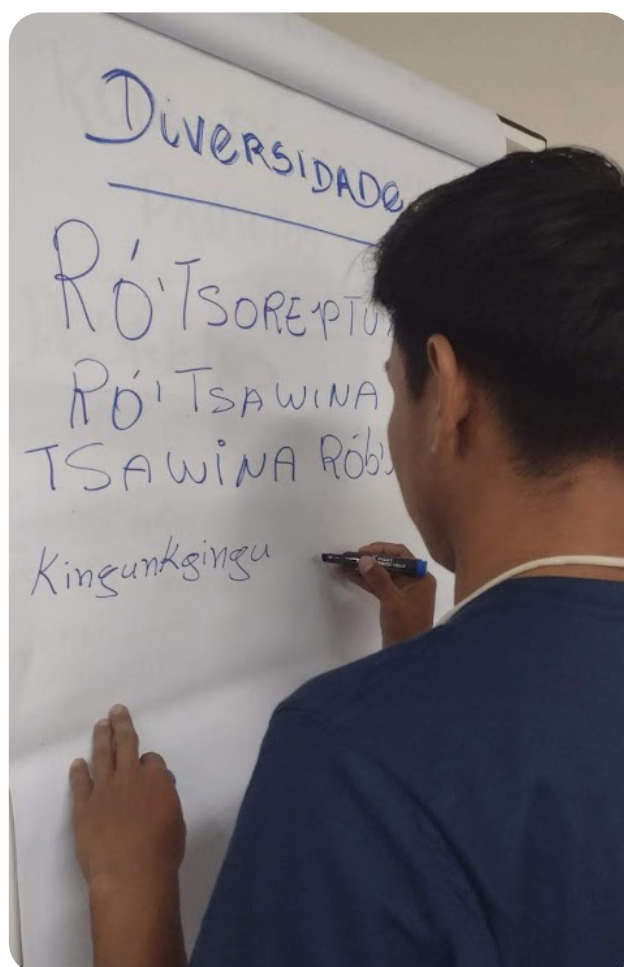 Diversidade
RÓ'TSORE'PTU
RÓ'TSAWINA
TSAWINA
Kingunkgingu